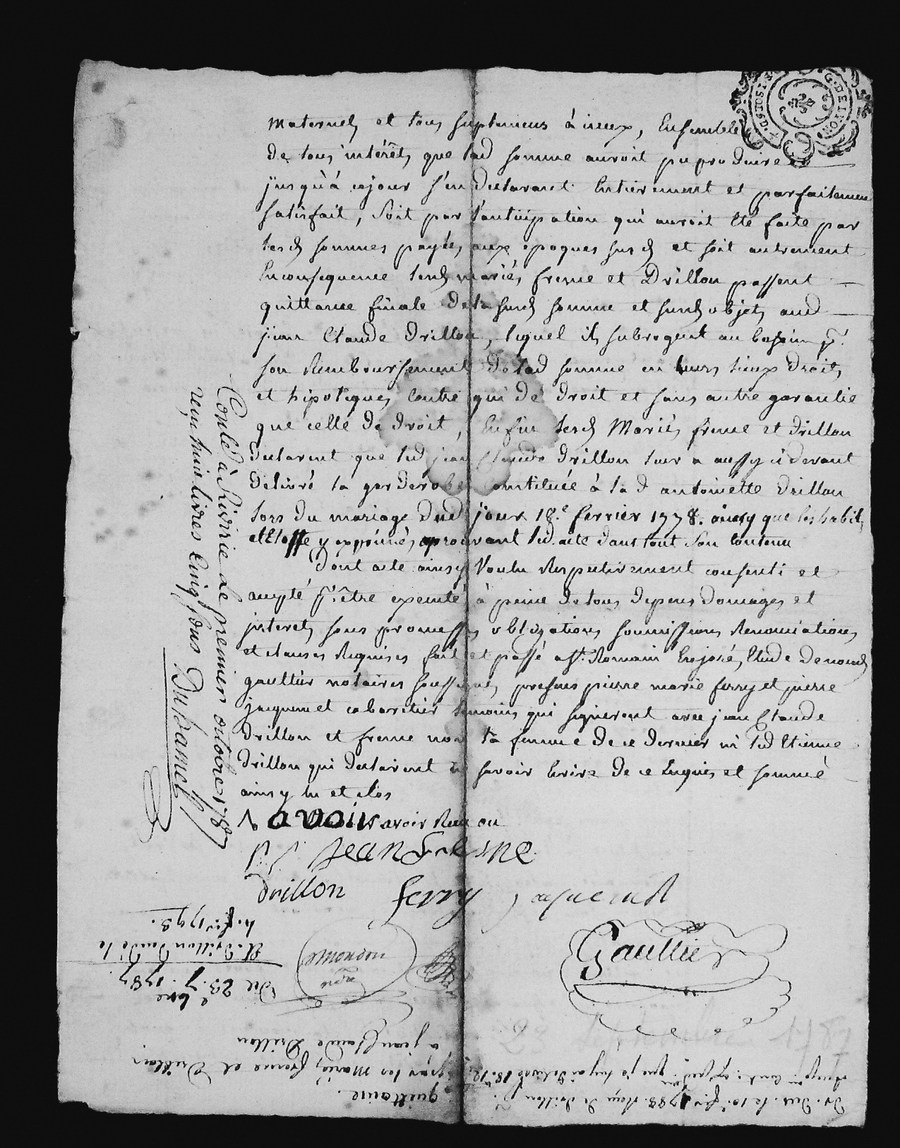 maternels et tous suplemens à iceux, Ensemble
de tous intérêts que lad somme auroit pu produire
jusqu'à cejour s'en declarant Entièrement et parfaitement
satisfait, soit par l'anticipation qui auroit été faite par
lesd sommes payées aux epoques susd et soit autrement
Enconsequence lesd mariés frene et Drillon passent
quittance finale de la susd somme et susd objets aud
jean Claude Drillon, lequel ils subrogent au besoin pr.
son Remboursement de lad somme en leurs lieux droits
et hipoteques contre qui de droit et sans autre garantie
que celle de droit, Enfin lesd Mariés frene et drillon
declarent que led jean Claude drillon leur a aussy cidevant
délivré la garderobe constituée à lad antoinette drillon
lors du mariage dud jour 18e. fevrier 1778. ainsy que les habits
et Etoffe y exprimés, aprouvant led acte dans tout son contenu
Dont acte ainsy Voulu Respectivement consenti et
accepté pr. être executé à peine de tous depens domages et
interets sous promesses obligations soumissions Renonciations
et clauses Requises fait et passé a St. Romain Enjarés, Etude de nousd
gaultier notaires soussignés, presens pierre marie ferry et pierre
jacquemet cabaretier temoins qui signeront avec jean Claude
Drillon et frene non la femme de ce dernier ni led Etienne
drillon qui declarent ne savoir Ecrire de ce Enquis et sommé
ainsy lu et clos
avoir avoir Reçu ou
Jean fresne
drillon ferry jaquemet
Gaultier
Conlé à Riverie le premier octobre 1787
reçu huit livres cinq sous Duhamel
G. DE LYON
quittance
par les Mariés frene et Drillon
a jean Claude Drillon
Du 23. 7bre 1787
23 Septembre 1787